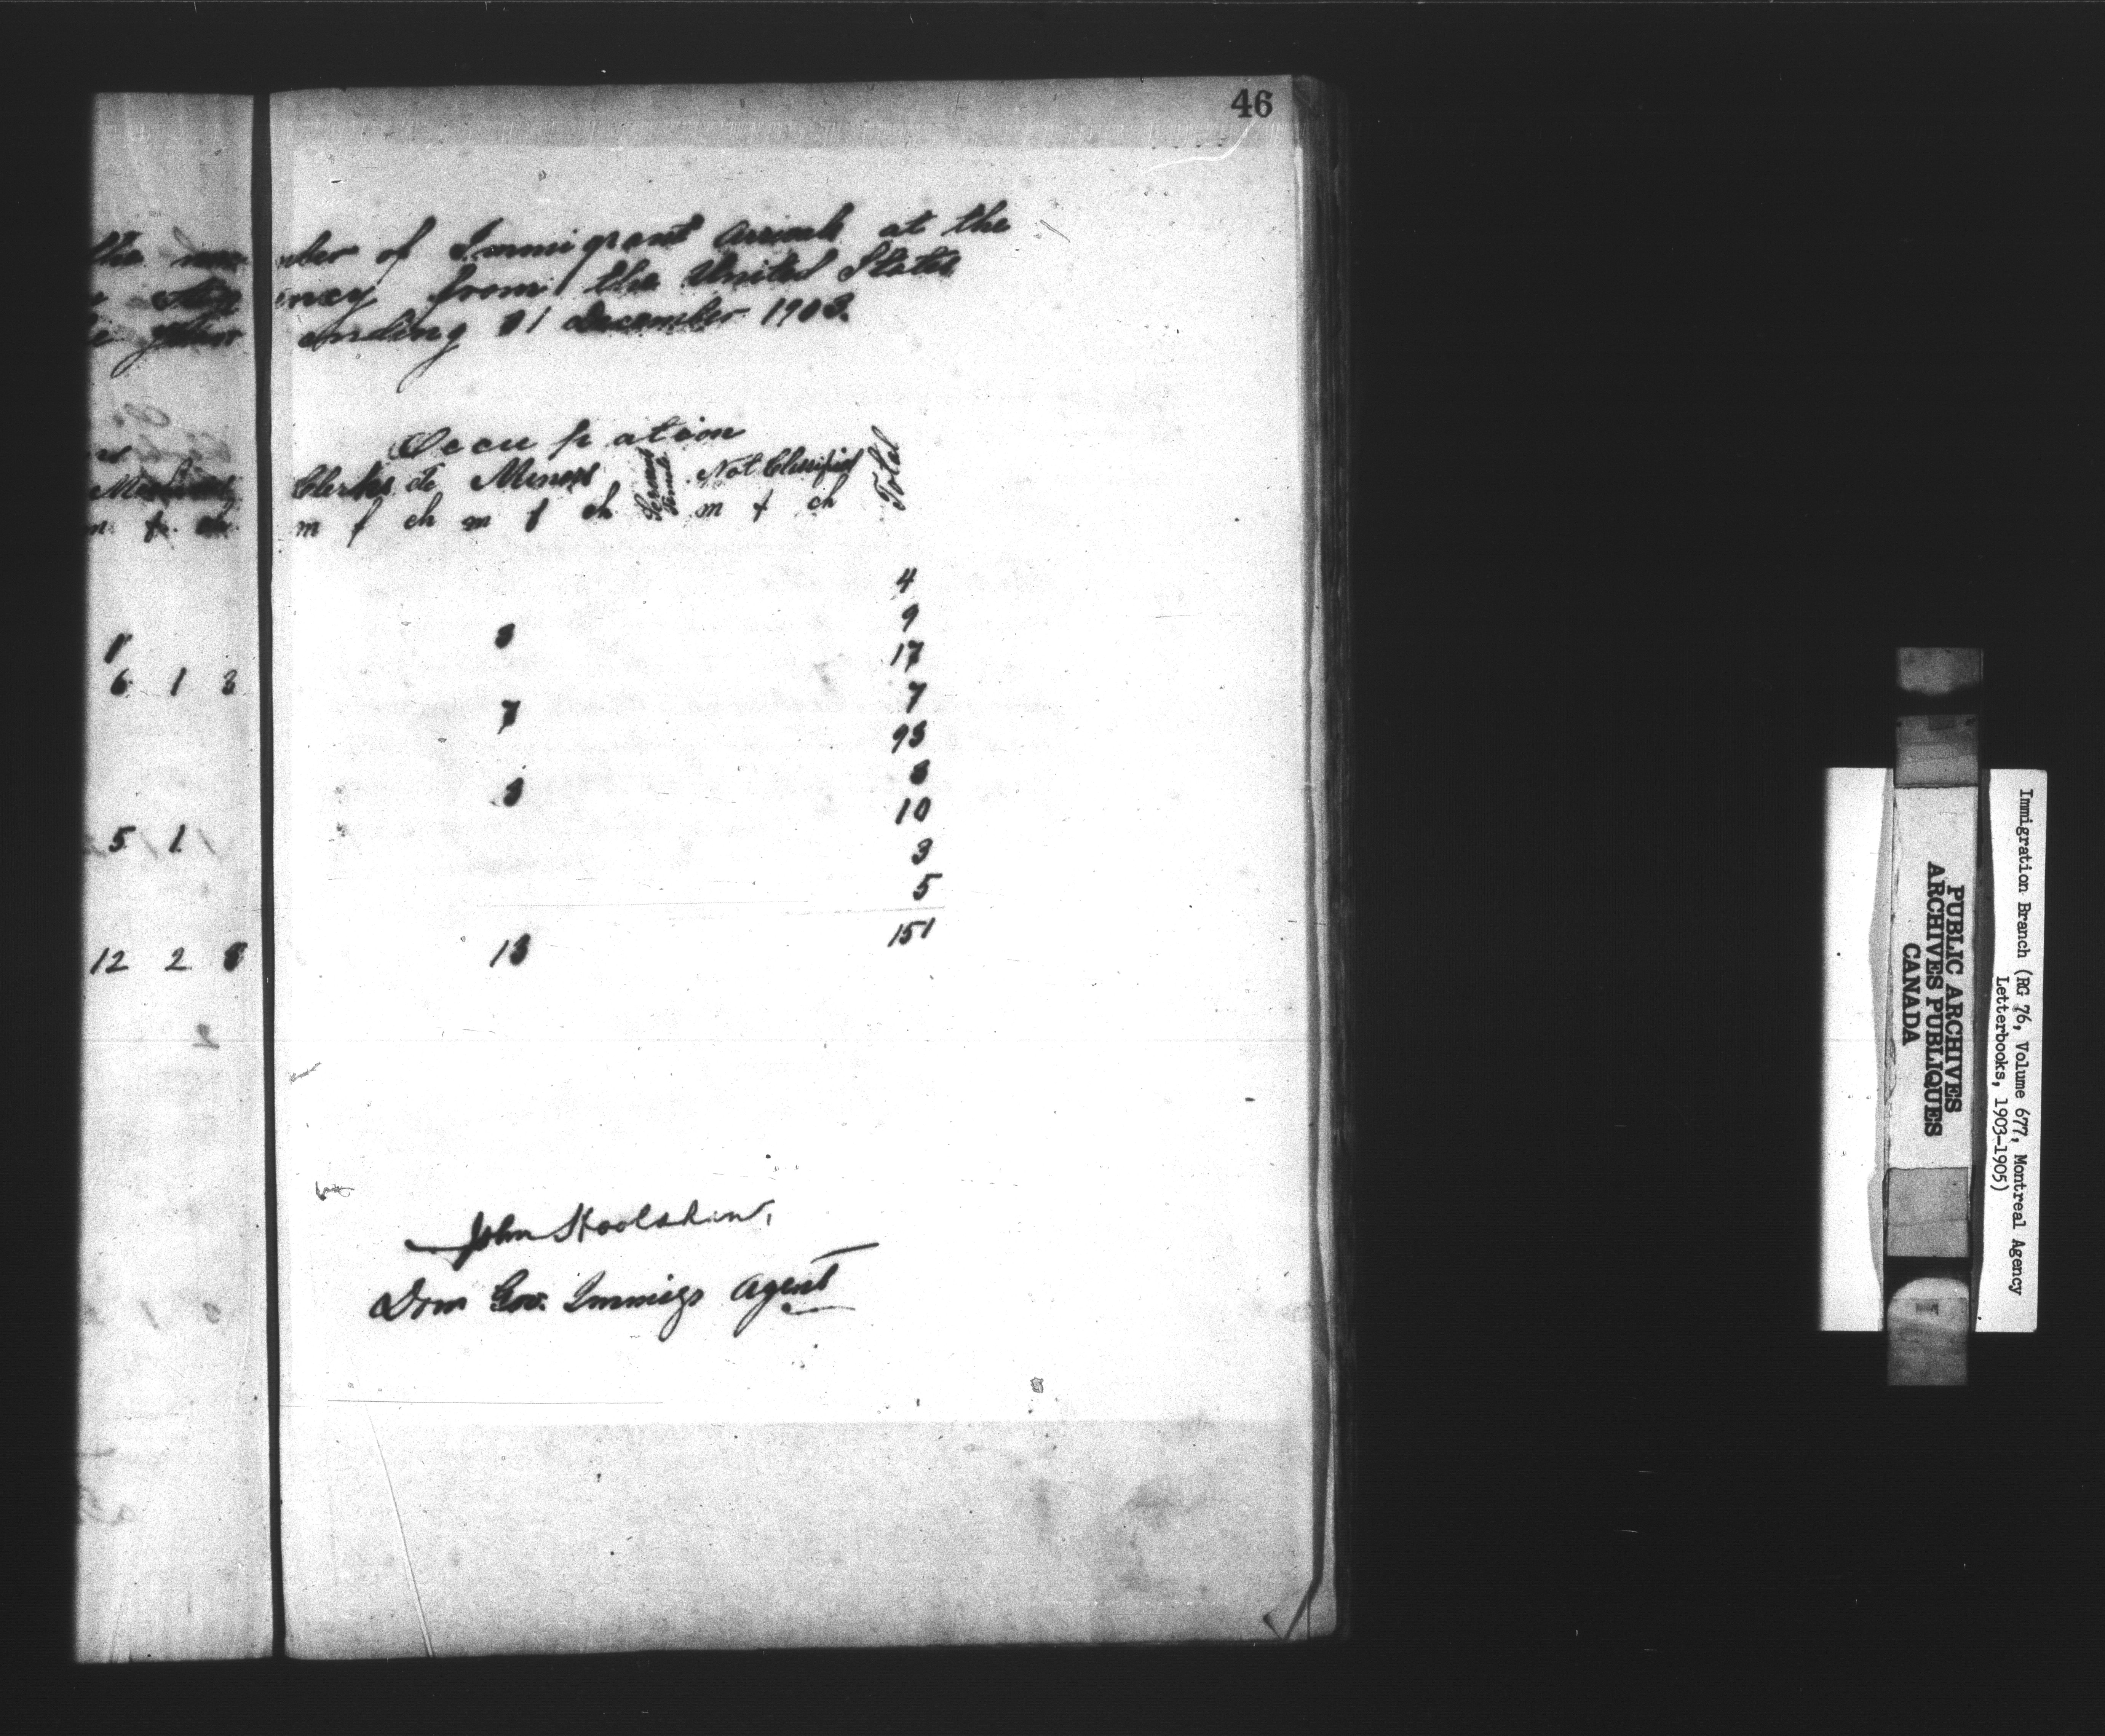 46
the number of Immigrant arrivals at the
ency from the United States
ending 31 December 1903.
Occupation
Clerks etc Miners Servants Female Not Classified Total
m f ch m f ch m f ch m f ch
4
9
3
17
6 1 3
7
7
93
3
3
10
5 1
3
5
151
12 2 3 13
John Hoolahan,
Dom Gov. Immigr Agent
Immigration Branch (RG 76, Volume 677, Montreal Agency
Letterbooks, 1903-1905)
PUBLIC ARCHIVES
ARCHIVES PUBLIQUES
CANADA